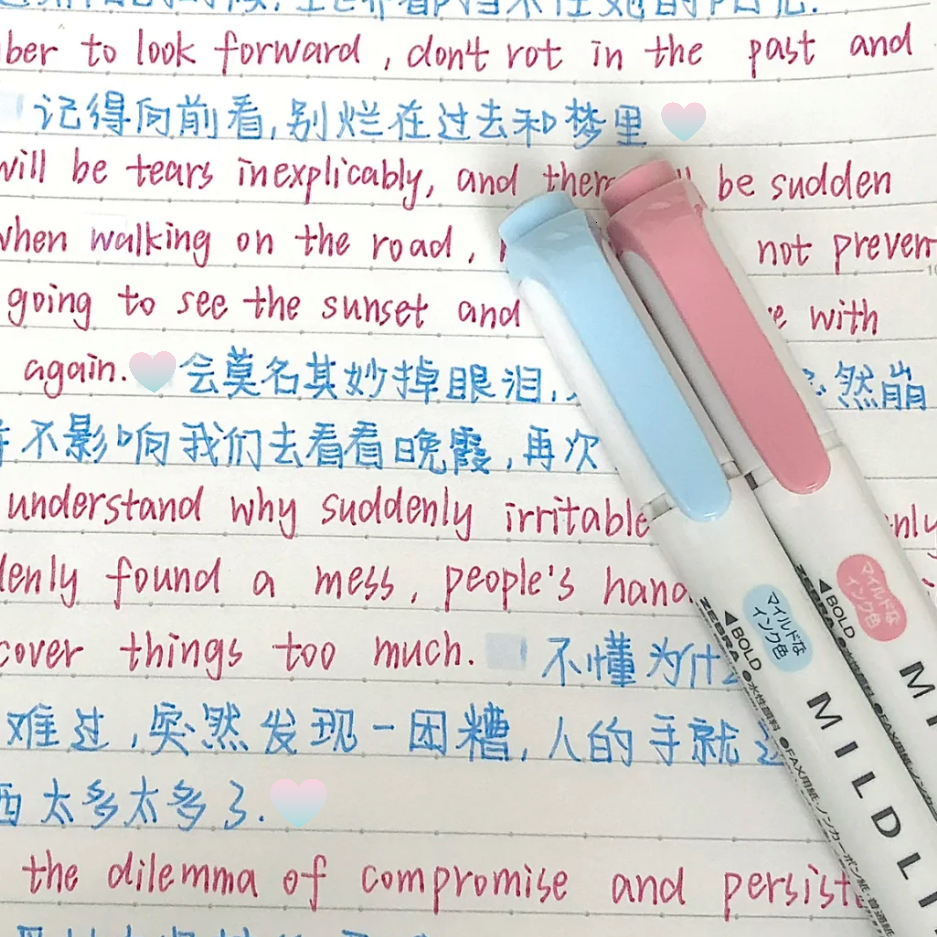 ber to look forward, don't rot in the past and
记得向前看,别烂在过去和梦里
will be tears inexplicably, and there be sudden
when walking on the road, not preven
going to see the sunset and with
again. 会莫名其妙掉眼泪, 然崩
不影响我们去看看晚霞,再次
understand why suddenly irritable nly
denly found a mess, people's hand
cover things too much. 不懂为什
难过,突然发现一团糟,人的手就
西太多太多了.
the dilemma of compromise and persist
マイルドな
インク色
BOLD
ZEBRA ●水性顔料 ●FAX用紙・ノンカーボン紙・普通紙
MILDLI
マイルドな
インク色
BOLD
ZEBRA
MI